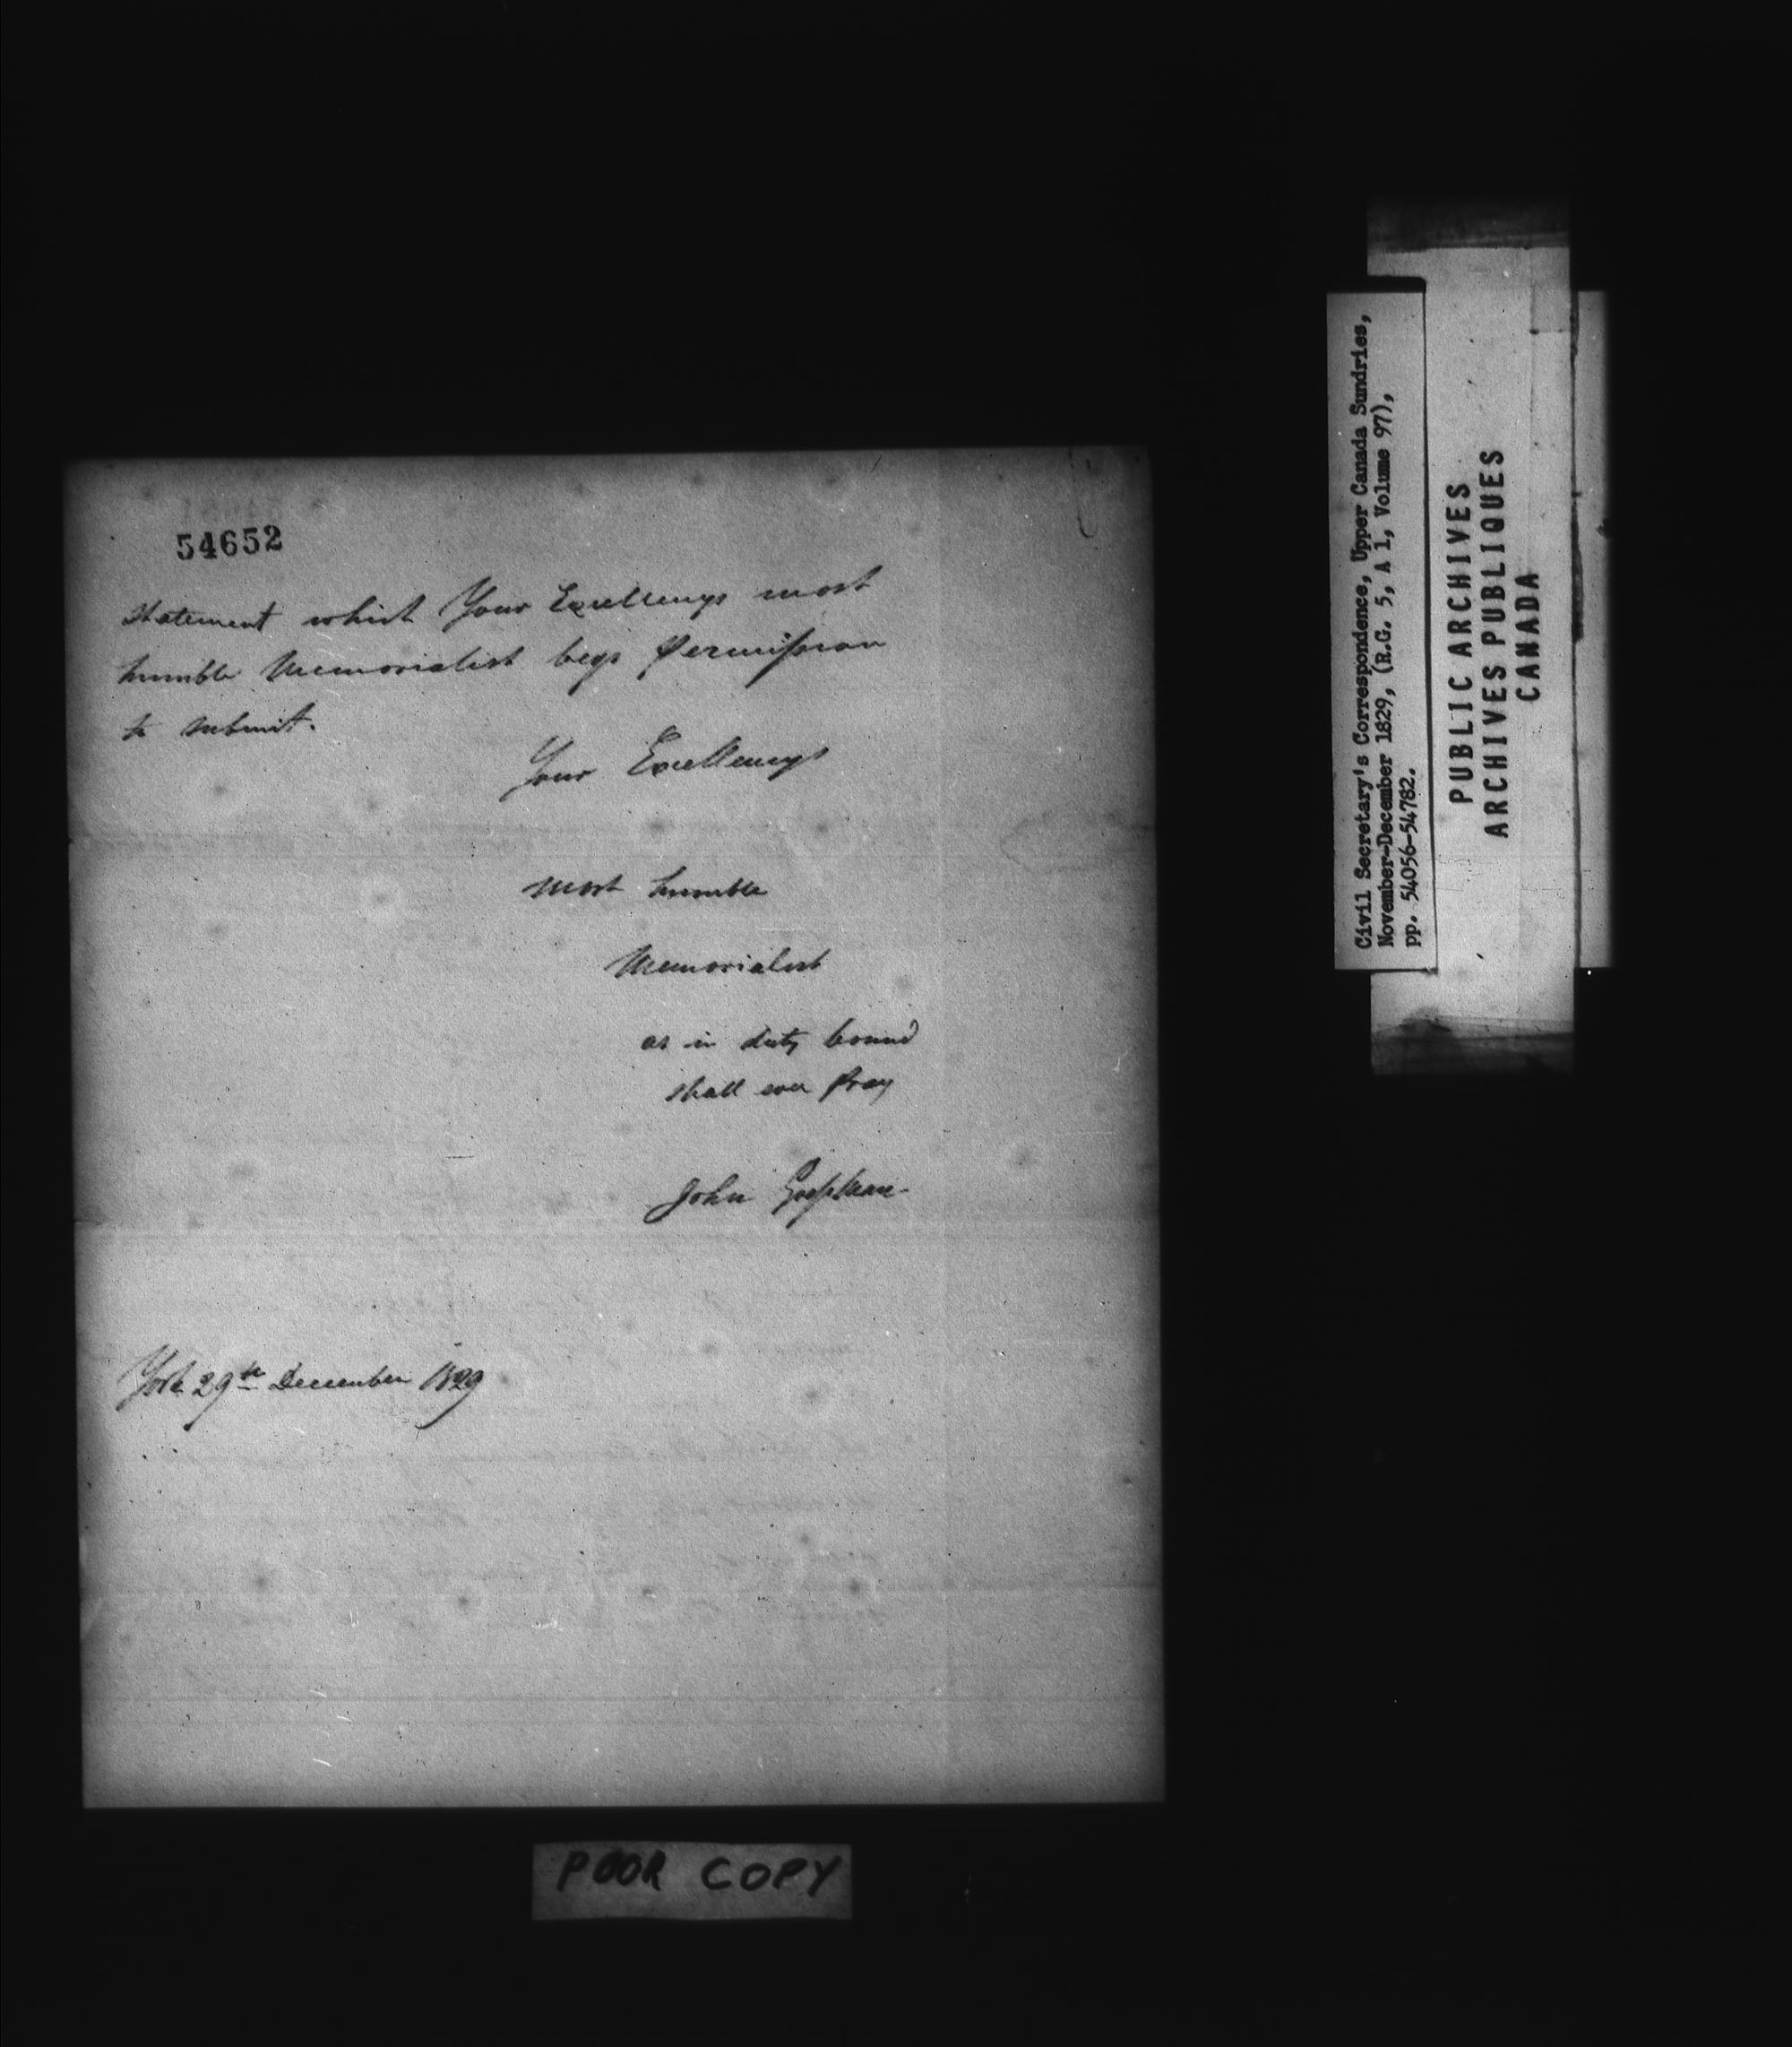 54652
statement which Your Excellencys most
humble Memorialist begs permission
to submit.
Your Excellencys
most humble
Memorialist
as in duty bound
shall ever pray
John Gossman
York 29th December 1829
POOR COPY
Civil Secretary's Correspondence, Upper Canada Sundries,
November-December 1829, (R.G. 5, A 1, Volume 97),
pp. 54056-54782.
PUBLIC ARCHIVES
ARCHIVES PUBLIQUES
CANADA